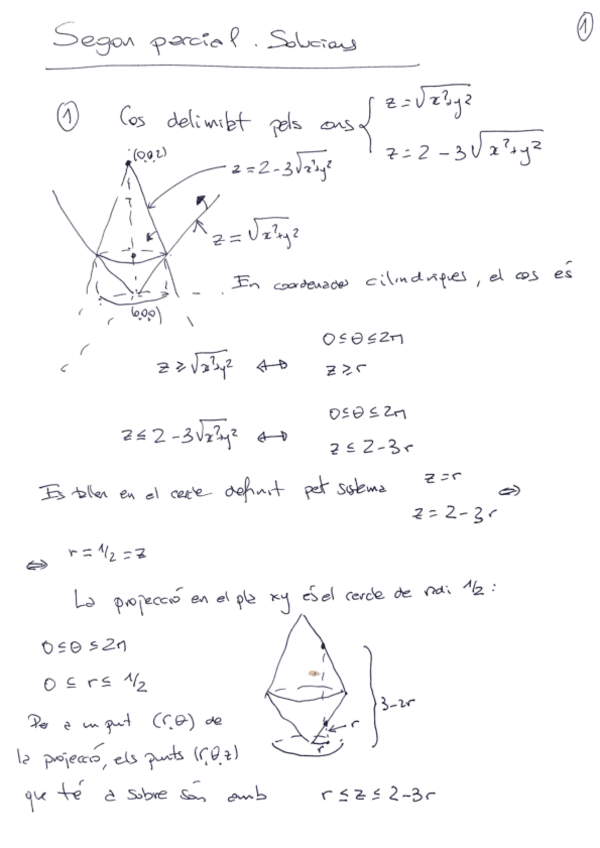 Segon parcial. Solucions
1
1 Cos delimitat pels cons { z = √x²+y²
z = 2 - 3√x²+y²
(0,0,2)
z = 2 - 3√x²+y²
z = √x²+y²
(0,0,0)
En coordenades cilíndriques, el cos és
0 ≤ θ ≤ 2π
z ≥ √x²+y² ↔ z ≥ r
0 ≤ θ ≤ 2π
z ≤ 2 - 3√x²+y² ↔ z ≤ 2 - 3r
Es tallen en el cercle definit pel sistema z = r
z = 2 - 3r ⇔
⇔ r = 1/2 = z
La projecció en el pla xy és el cercle de radi 1/2:
0 ≤ θ ≤ 2π
0 ≤ r ≤ 1/2
3-2r
r
r
Per a un punt (r,θ) de
la projecció, els punts (r,θ,z)
que té a sobre són amb r ≤ z ≤ 2-3r